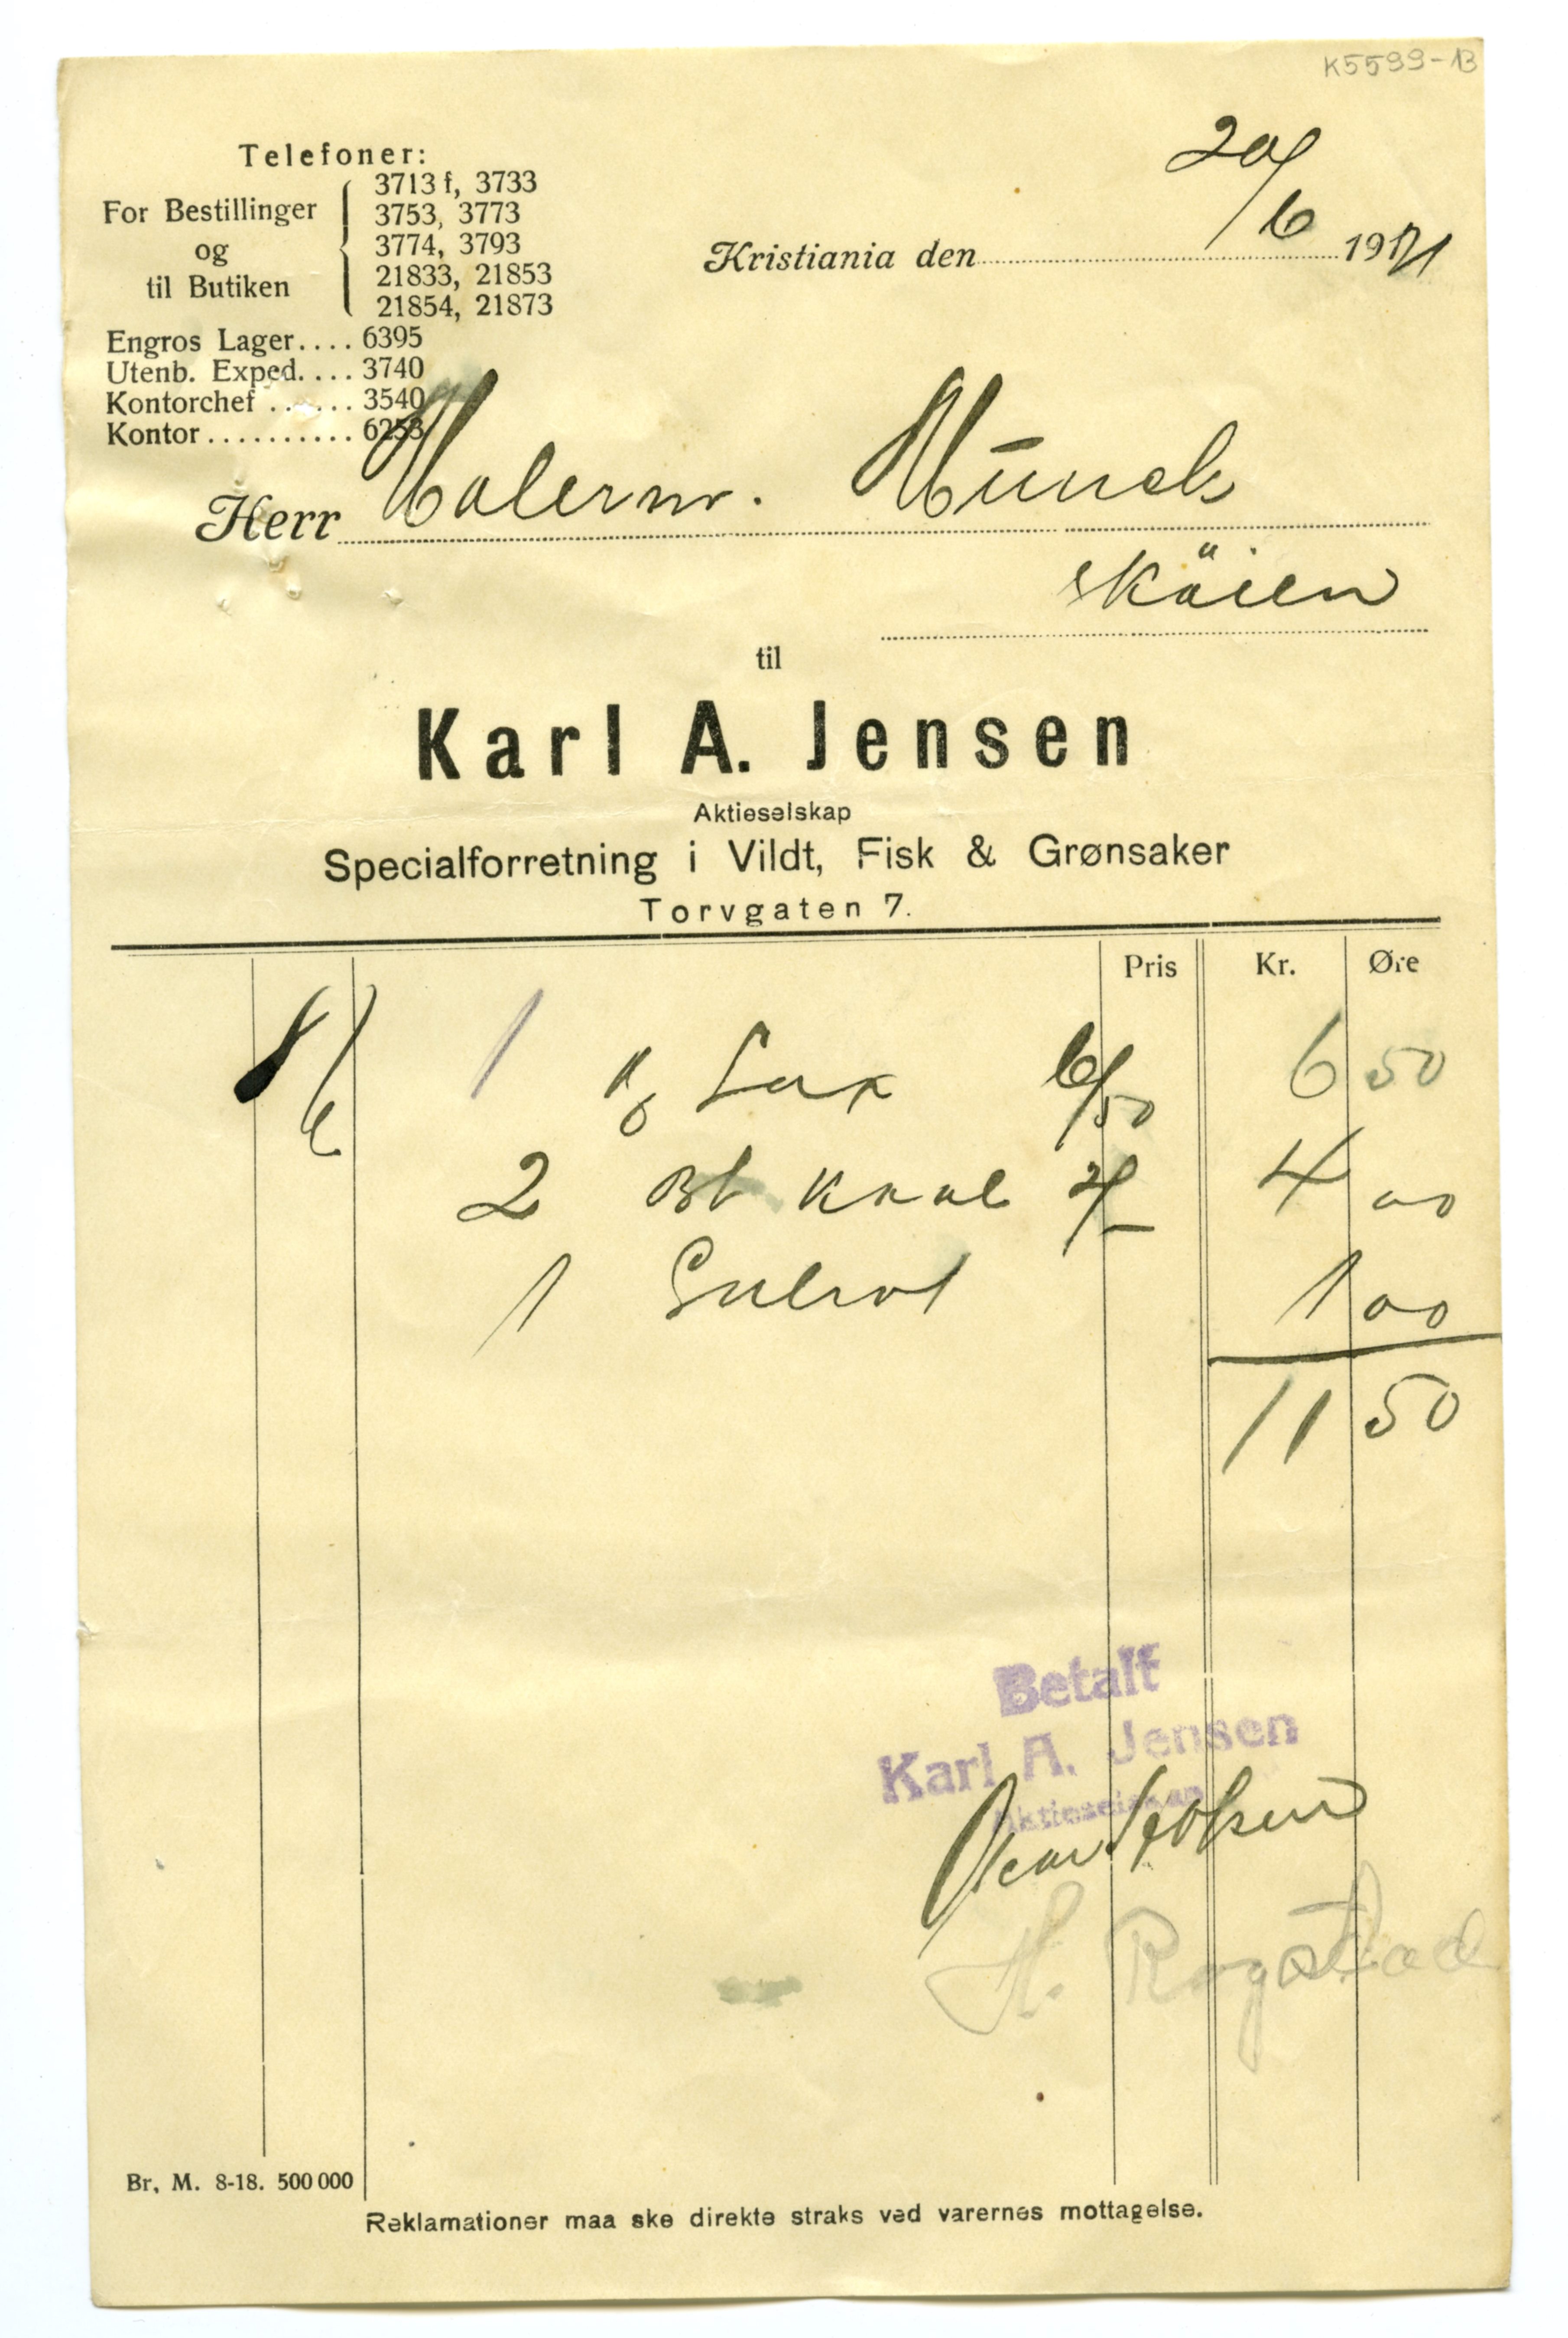 K5599-13
Telefoner:
For Bestillinger og til Butiken
3713 f, 3733
3753, 3773
3774, 3793
21833, 21853
21854, 21873
Engros Lager.... 6395
Utenb. Exped.... 3740
Kontorchef ...... 3540
Kontor.......... 6253
20/6
Kristiania den 1921
Herr Malerm. Munch
Sköien
til
Karl A. Jensen
Aktieselskap
Specialforretning i Vildt, Fisk & Grønsaker
Torvgaten 7.
Pris Kr. Øre
8/6 1 kg Lax 6/50 6 50
2 Bl Kaal 2/- 4 00
1 Gulrot 1 00
11 50
Betalt
Karl A. Jensen
Aktieselskap
H. Rogstad
Br. M. 8-18. 500 000
Reklamationer maa ske direkte straks ved varernes mottagelse.